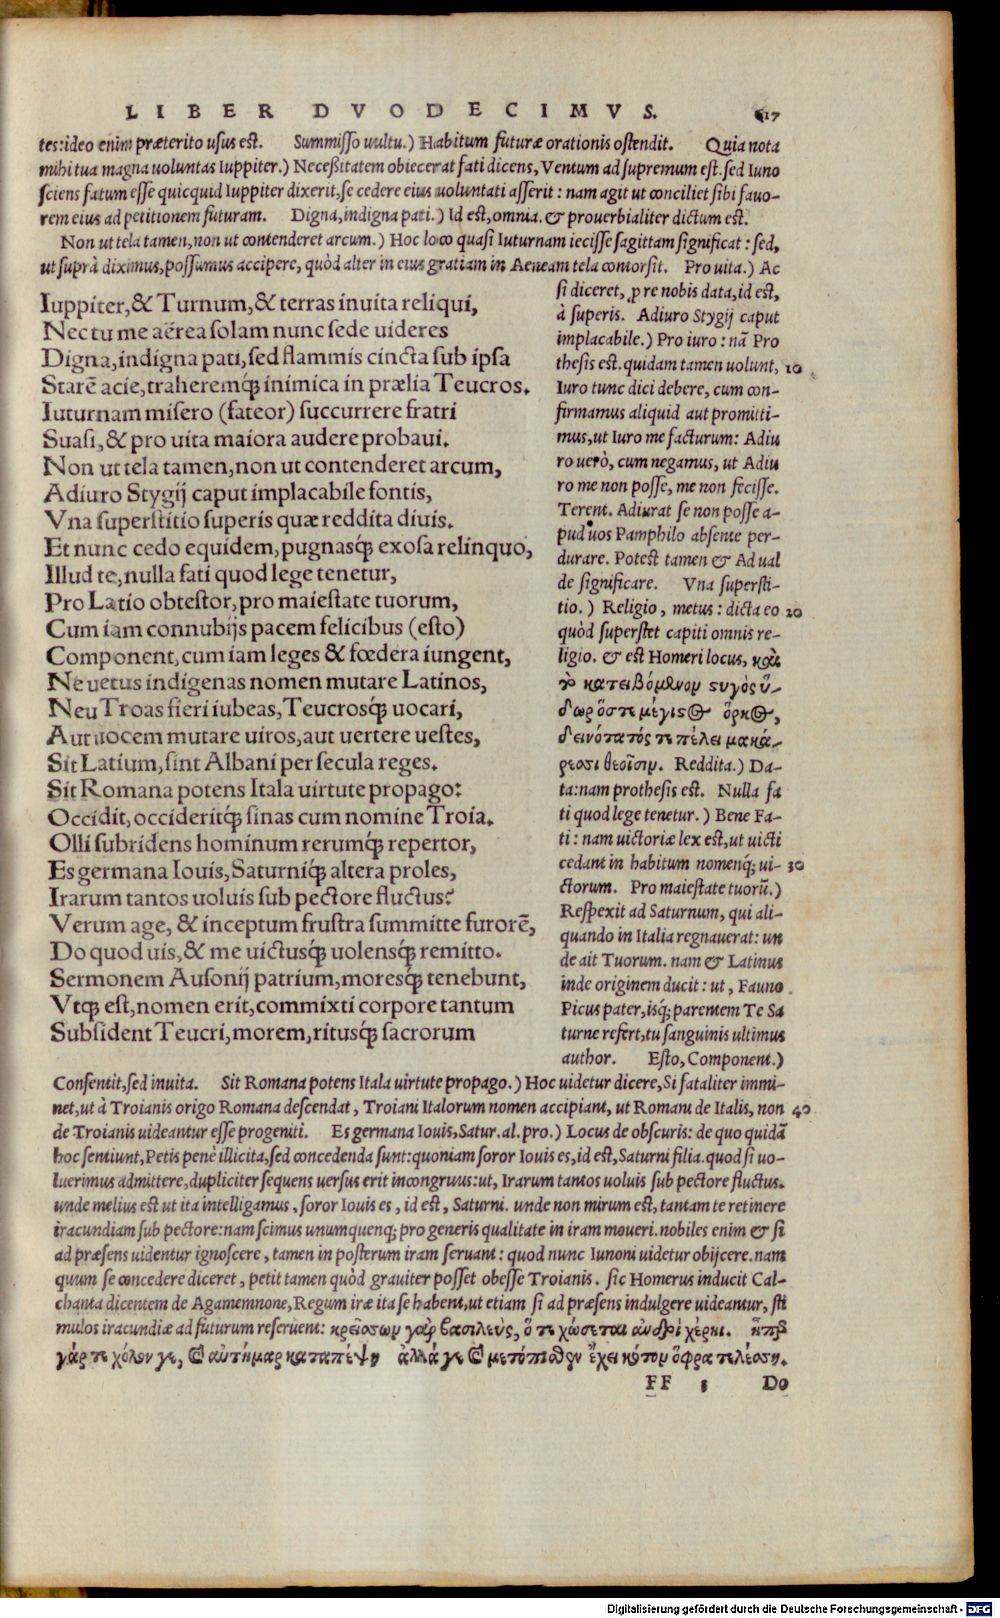 LIBER DVODECIMVS. 617
tes: ideo enim præterito usus est. Summisso uultu.) Habitum futuræ orationis ostendit. Quia nota
mihi tua magna uoluntas Iuppiter.) Necessitatem obiecerat fati dicens, Ventum ad supremum est. sed Iuno
sciens fatum esse quicquid Iuppiter dixerit, se cedere eius uoluntati asserit: nam agit ut conciliet sibi fauo-
rem eius ad petitionem futuram. Digna, indigna pati.) Id est, omnia. & prouerbialiter dictum est.
Non ut tela tamen, non ut contenderet arcum.) Hoc loco quasi Iuturnam iecisse sagittam significat: sed,
ut suprà diximus, possumus accipere, quòd alter in eius gratiam in Aeneam tela contorsit. Pro uita.) Ac
Iuppiter, & Turnum, & terras inuita reliqui,
Nec tu me aërea solam nunc sede uideres
Digna, indigna pati, sed flammis cincta sub ipsa
Starē acie, traheremq́; inimica in prælia Teucros.
Iuturnam misero (fateor) succurrere fratri
Suasi, & pro uita maiora audere probaui.
Non ut tela tamen, non ut contenderet arcum,
Adiuro Stygij caput implacabile fontis,
Vna superstitio superis quæ reddita diuis.
Et nunc cedo equidem, pugnasq́; exosa relinquo,
Illud te, nulla fati quod lege tenetur,
Pro Latio obtestor, pro maiestate tuorum,
Cum iam connubijs pacem felicibus (esto)
Component, cum iam leges & fœdera iungent,
Ne uetus indigenas nomen mutare Latinos,
Neu Troas fieri iubeas, Teucrosq́; uocari,
Aut uocem mutare uiros, aut uertere uestes,
Sit Latium, sint Albani per secula reges.
Sit Romana potens Itala uirtute propago:
Occidit, occideritq́; sinas cum nomine Troia.
Olli subridens hominum rerumq́; repertor,
Es germana Iouis, Saturniq́; altera proles,
Irarum tantos uoluis sub pectore fluctus?
Verum age, & inceptum frustra summitte furorē,
Do quod uis, & me uictusq́; uolensq́; remitto.
Sermonem Ausonij patrium, moresq́; tenebunt,
Vtq́; est, nomen erit, commixti corpore tantum
Subsident Teucri, morem, ritusq́; sacrorum
si diceret, ꝓ re nobis data, id est,
à superis. Adiuro Stygij caput
implacabile.) Pro iuro: nā Pro
thesis est. quidam tamen uolunt, 10
Iuro tunc dici debere, cum con-
firmamus aliquid aut promitti-
mus, ut Iuro me facturum: Adiu
ro uerò, cum negamus, ut Adiu
ro me non posse, me non fecisse.
Terent. Adiurat se non posse a-
pud uos Pamphilo absente per-
durare. Potest tamen & Ad ual
de significare. Vna supersti-
tio.) Religio, metus: dicta eo 20
quòd superstet capiti omnis re-
ligio. & est Homeri locus, καὶ
τὸ κατειβόμενον στυγὸς ὕ-
δωρ ὅστε μέγιστος ὅρκος,
δεινότατός τε πέλει μακά-
ρεσσι θεοῖσιν. Reddita.) Da-
ta: nam prothesis est. Nulla fa
ti quod lege tenetur.) Bene Fa-
ti: nam uictoriæ lex est, ut uicti
cedant in habitum nomenq́; ui- 30
ctorum. Pro maiestate tuorū.)
Respexit ad Saturnum, qui ali-
quando in Italia regnauerat: un
de ait Tuorum. nam & Latinus
inde originem ducit: ut, Fauno
Picus pater, isq́; parentem Te Sa
turne refert, tu sanguinis ultimus
author. Esto, Component.)
Consentit, sed inuita. Sit Romana potens Itala uirtute propago.) Hoc uidetur dicere, Si fataliter immi-
net, ut à Troianis origo Romana descendat, Troiani Italorum nomen accipiant, ut Romani de Italis, non 40
de Troianis uideantur esse progeniti. Es germana Iouis, Satur. al. pro.) Locus de obscuris: de quo quidā
hoc sentiunt, Petis penè illicita, sed concedenda sunt: quoniam soror Iouis es, id est, Saturni filia. quod si uo-
luerimus admittere, dupliciter sequens uersus erit incongruus: ut, Irarum tantos uoluis sub pectore fluctus.
unde melius est ut ita intelligamus, soror Iouis es, id est, Saturni. unde non mirum est, tantam te retinere
iracundiam sub pectore: nam scimus unumquenq́; pro generis qualitate in iram moueri. nobiles enim & si
ad præsens uidentur ignoscere, tamen in posterum iram seruant: quod nunc Iunoni uidetur obijcere. nam
quum se concedere diceret, petit tamen quòd grauiter posset obesse Troianis. sic Homerus inducit Cal-
chanta dicentem de Agamemnone, Regum iræ ita se habent, ut etiam si ad præsens indulgere uideantur, sti
mulos iracundiæ ad futurum reseruent: κρείσσων γὰρ βασιλεὺς, ὅτε χώσεται ἀνδρὶ χέρηι. ἤπερ
γάρ τε χόλον γε, καὶ αὐτῆμαρ καταπέψῃ ἀλλά γε καὶ μετόπισθεν ἔχει κότον ὄφρα τελέσσῃ.
FF 5 Do
Digitalisierung gefördert durch die Deutsche Forschungsgemeinschaft - DFG